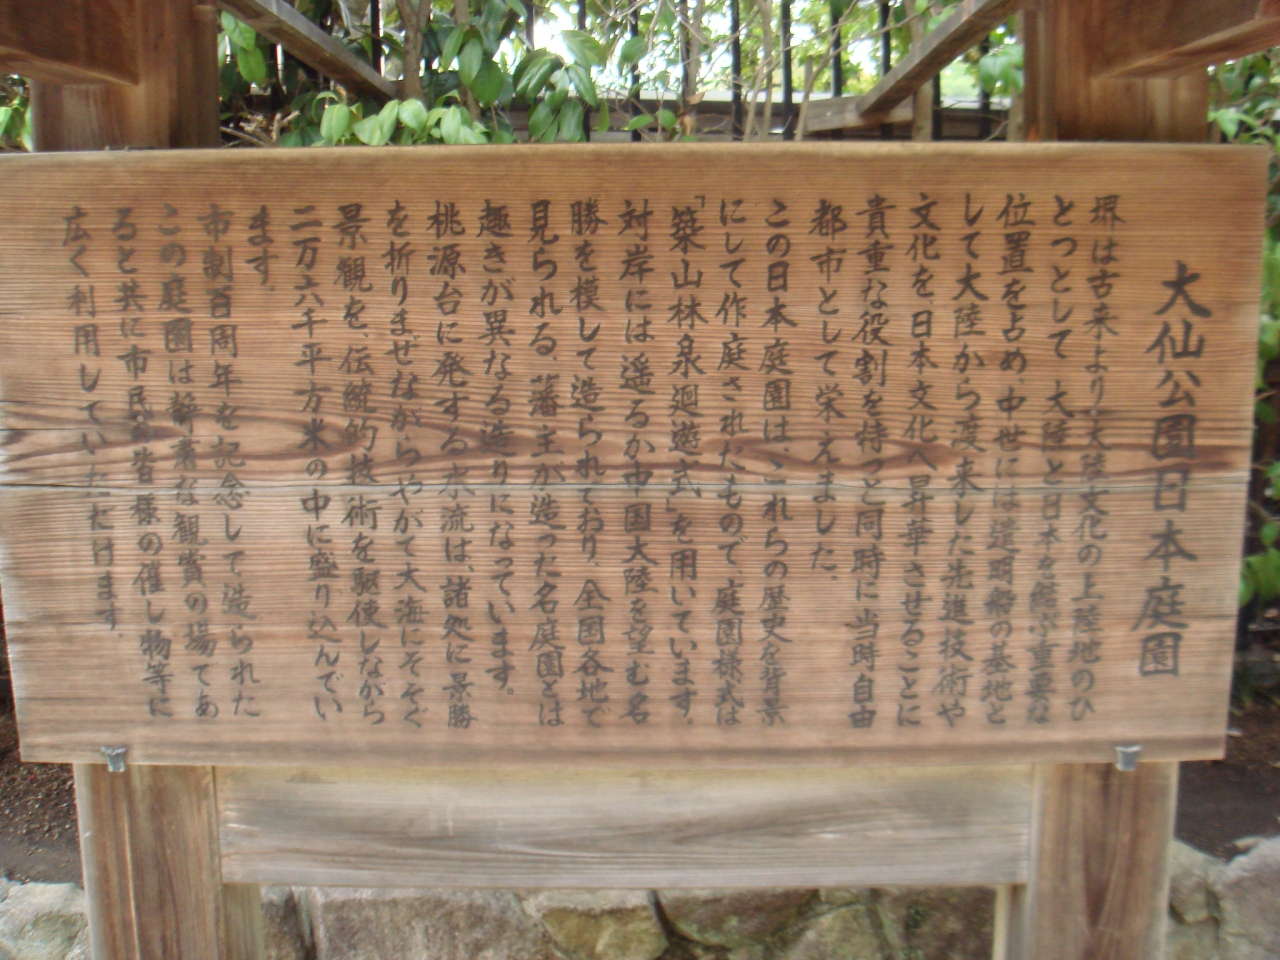 大仙公園日本庭園
堺は古来より、大陸文化の上陸地のひ
とつとして大陸と日本を結ぶ重要な
位置を占め、中世には遣明船の基地と
して大陸から渡来した先進技術や
文化を日本文化へ昇華させることに
貴重な役割を持つと同時に当時自由
都市として栄えました。
この日本庭園は、これらの歴史を背景
にして作庭されたもので、庭園様式は
「築山林泉廻遊式」を用いています。
対岸には遥るか中国大陸を望む名
勝を模して造られており、全国各地で
見られる、藩主が造った名庭園とは
趣きが異なる造りになっています。
桃源台に発する水流は、諸処に景勝
を折りまぜながらやがて大海にそそぐ
景観を、伝統的技術を駆使しながら
二万六千平方米の中に盛り込んでい
ます。
市制百周年を記念して造られた
この庭園は静粛な観賞の場であ
ると共に市民皆様の催し物等に
広く利用していただけます。